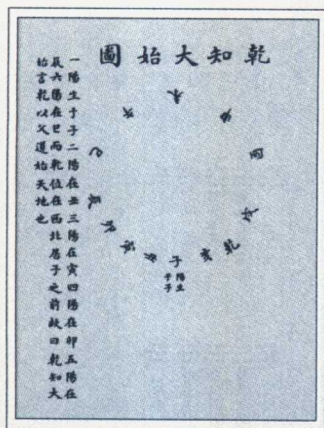 乾知大始圖
未
申
酉
戌
乾
亥
子
陽生
于子
丑
寅
卯
辰
巳
午
一陽生于子二陽在丑三陽在寅四陽在卯五陽在
辰六陽在巳而乾位在西北居子之前故曰乾知大
始言乾以父道始天地也